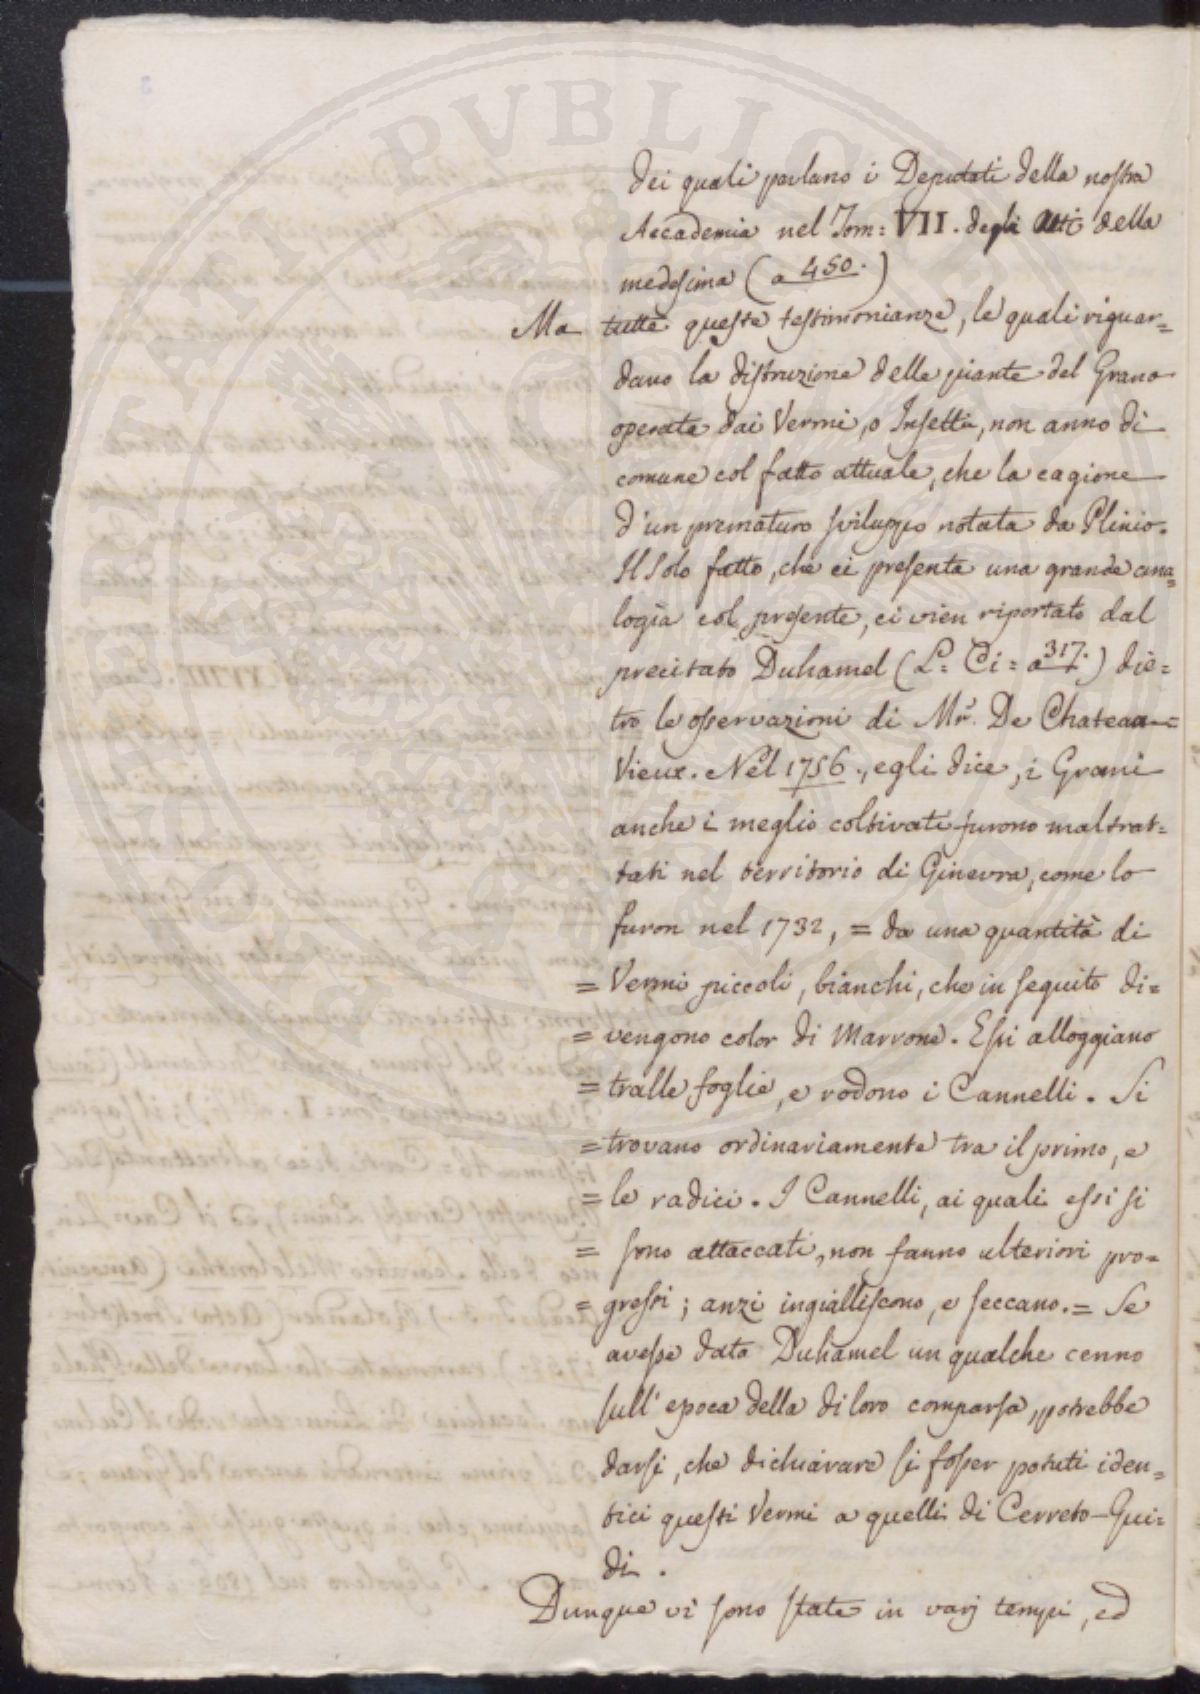 dei quali parlano i Deputati della nostra
Accademia nel Tom: VII. degli Atti della
medesima (a 450.)
Ma tutte queste testimonianze, le quali riguar=
dano la distruzione delle piante del Grano
operata dai Vermi, o Insetti, non anno di
comune col fatto attuale, che la cagione
d'un prematuro sviluppo notata da Plinio.
Il solo fatto, che ci presenta una grande ana=
logia col presente, ci vien riportato dal
precitato Duhamel (L: Ci= a 317.) die=
tro le osservazioni di Mr. De Chateau=
Vieux. Nel 1756., egli dice, i Grani
anche i meglio coltivati furono maltrat=
tati nel territorio di Ginevra, come lo
furon nel 1732, = da una quantità di
= Vermi piccoli, bianchi, che in seguito di=
= vengono color di Marrone. Essi alloggiano
= tralle foglie, e rodono i Cannelli. Si
= trovano ordinariamente tra il primo, e
= le radici. I Cannelli, ai quali essi si
= sono attaccati, non fanno ulteriori pro=
= gressi; anzi ingialliscono, e seccano. = Se
avesse dato Duhamel un qualche cenno
sull' epoca della di loro comparsa, potrebbe
darsi, che dichiarare si fosser potuti iden=
tici questi Vermi a quelli di Cerreto-Gui=
di.
Dunque vi sono state in varj tempi, ed